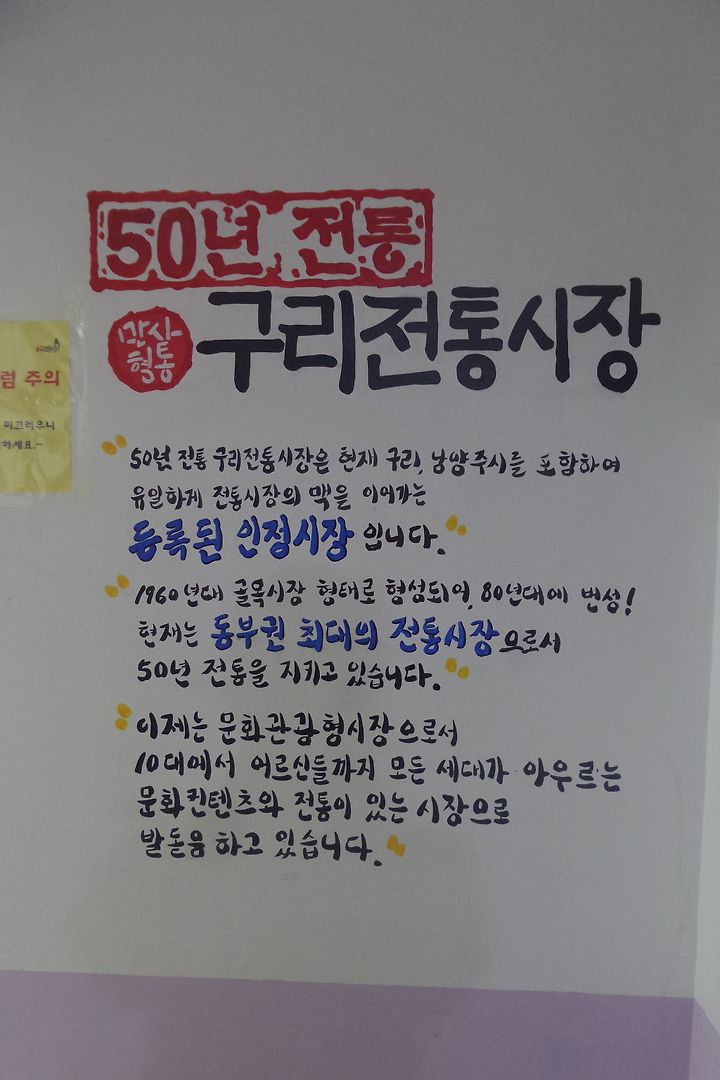 50년 전통
만사
형통
구리전통시장
럼 주의
미끄러우니
하세요.~
"50년 전통 구리전통시장은 현재 구리, 남양주시를 포함하여
유일하게 전통시장의 맥을 이어가는
등록된 인정시장 입니다."
"1960년대 골목시장 형태로 형성되어, 80년대에 번성!
현재는 동부권 최대의 전통시장으로서
50년 전통을 지키고 있습니다."
"이제는 문화관광형시장으로서
10대에서 어르신들까지 모든 세대가 아우르는
문화컨텐츠와 전통이 있는 시장으로
발돋움 하고 있습니다."